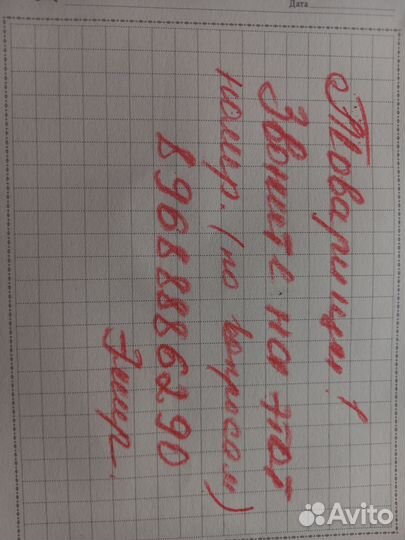 Дата
Товарищи!
Звоните на этот
номер. (по вопросам)
89688886290
Эмир.
Avito